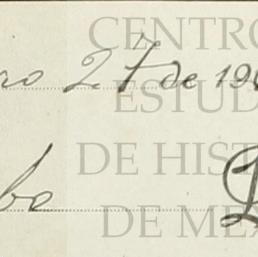 CENTRO
ro 27 de 190
ESTUD
DE HIST
be
DE MÉX